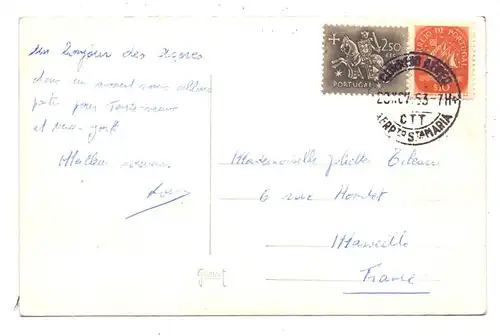 Un bonjour des Açores
dans un moment nous allons
partir pour Terre-neuve
et New-York
Meilleurs
2$50
PORTUGAL
CORREIO DE PORTUGAL
CORREIO AEREO
CTT
AERPTO STA MARIA
Mademoiselle Juliette
6 rue
Marseille
France